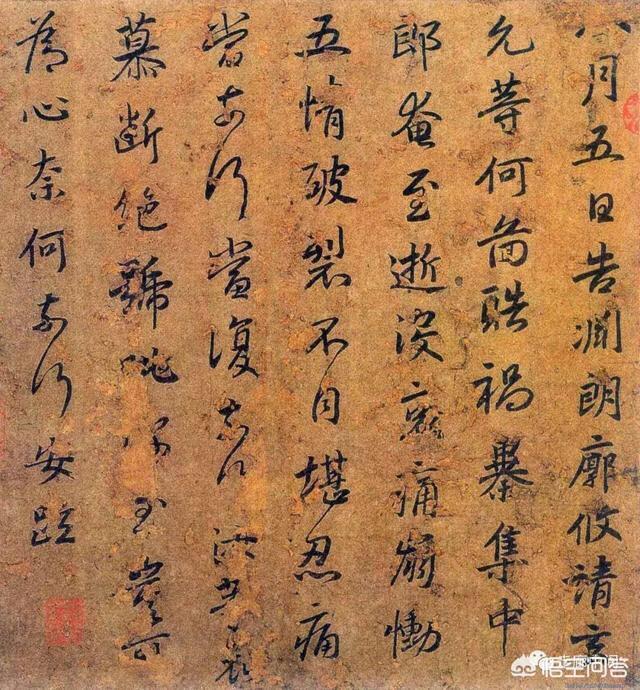 八月五日告淵朗廓攸靖玄
允等何圖酷禍暴集中
郎奄至逝沒哀痛崩慟
五情破裂不自堪忍痛
當奈何當復奈何汝等哀
慕斷絕號咷深至豈可
為心奈何奈何安疏
悟空问答